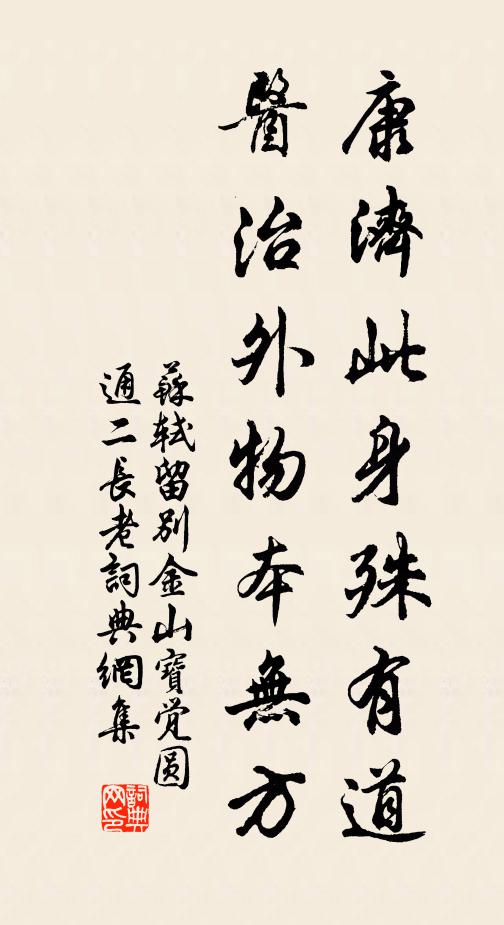 康濟此身殊有道
醫治外物本無方
蘇軾留別金山寶覚圓
通二長老詞典網集
詞典
网印